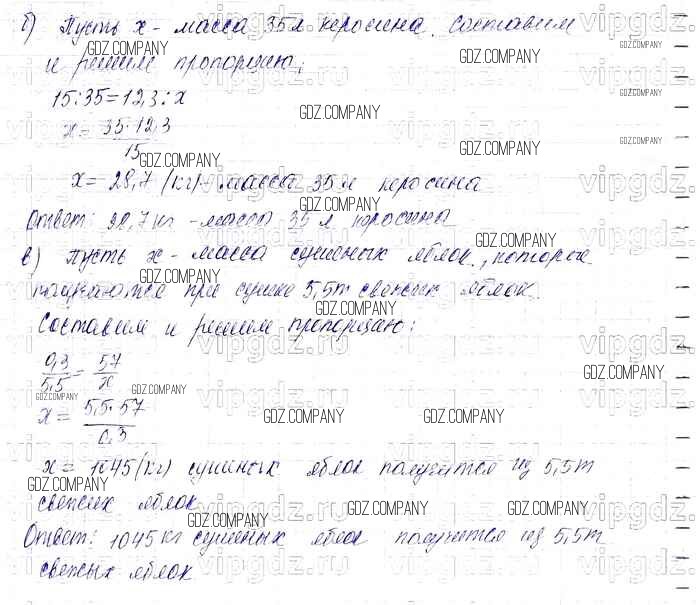 б) Пусть x - масса 35 л керосина. Составим
и решим пропорцию:
15:35=12,3:x
x= 35·12,3
15
x= 28,7 (кг) - масса 35 л керосина
Ответ: 28,7 кг - масса 35 л керосина
в) Пусть x - масса сушеных яблок, которые
при сушке 5,5т свежих яблок.
Составим и решим пропорцию:
0,3 = 57
5,5 x
x= 5,5·57
0,3
x= 1045 (кг) сушеных яблок получится из 5,5т
свежих яблок
Ответ: 1045 кг сушеных яблок получится из 5,5т
свежих яблок
GDZ.COMPANY
vipgdz.ru